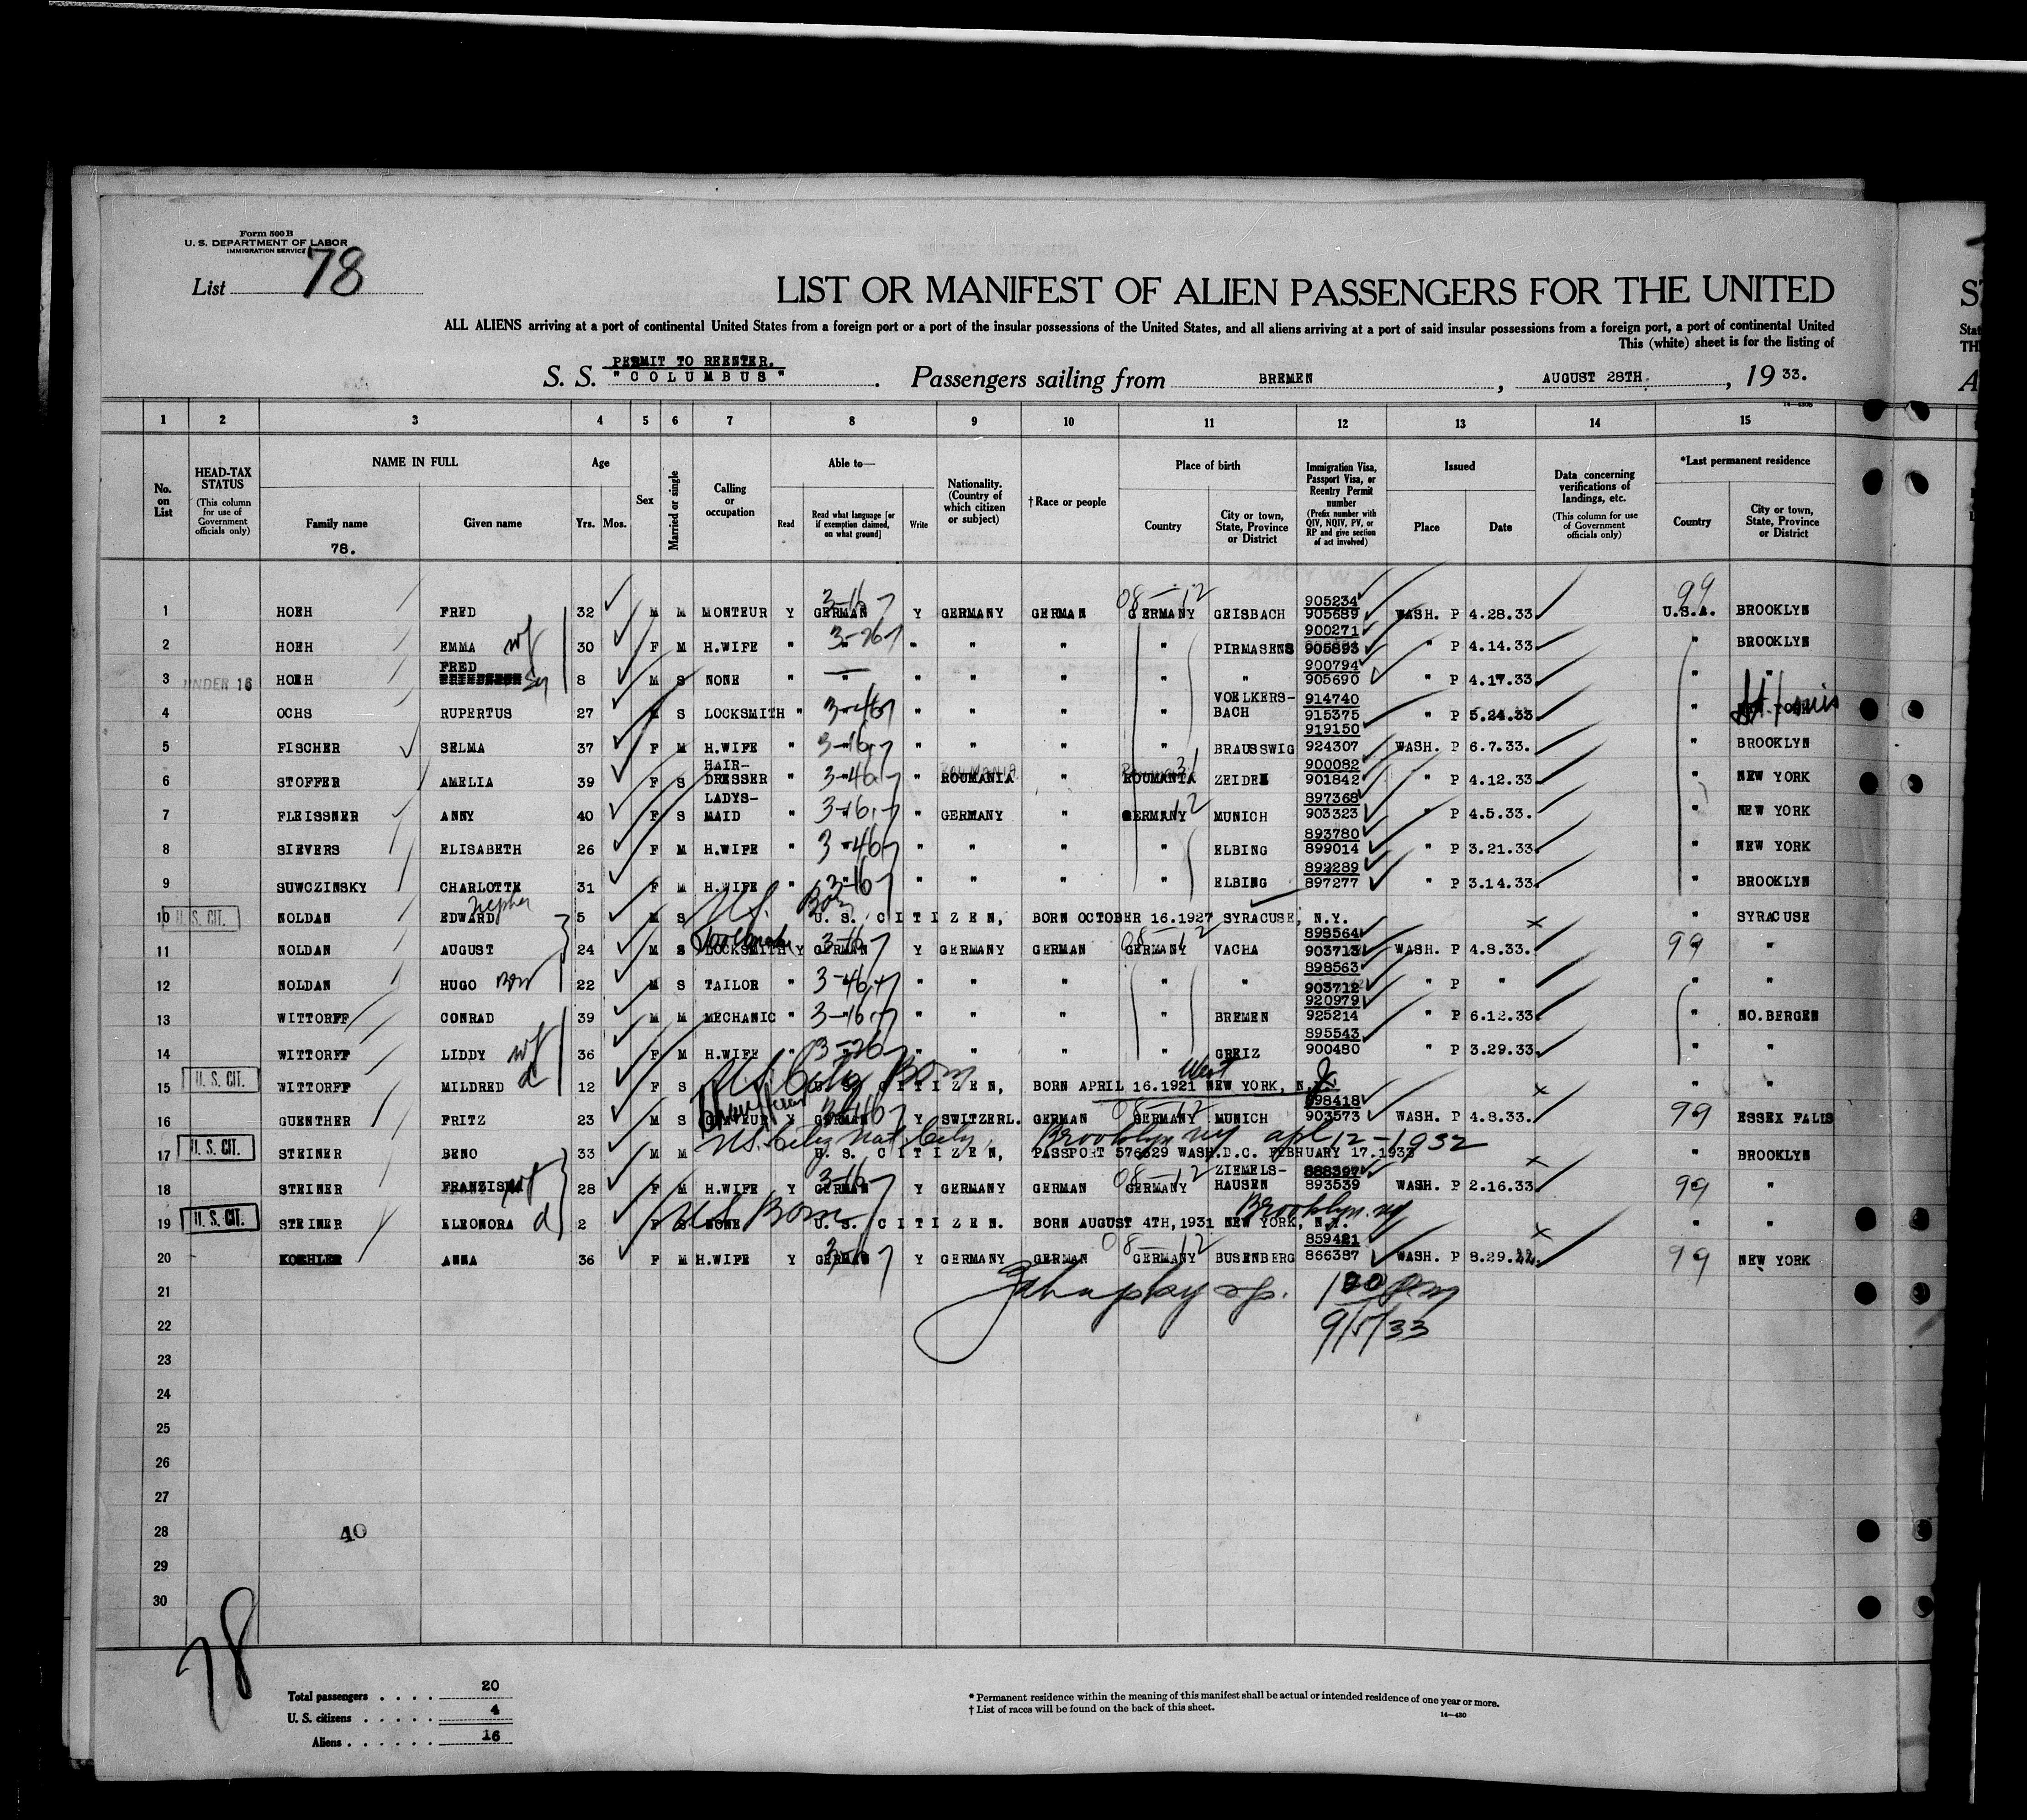 Form 500 B
U. S. DEPARTMENT OF LABOR
IMMIGRATION SERVICE
List 78
LIST OR MANIFEST OF ALIEN PASSENGERS FOR THE UNITED
ALL ALIENS arriving at a port of continental United States from a foreign port or a port of the insular possessions of the United States, and all aliens arriving at a port of said insular possessions from a foreign port, a port of continental United
This (white) sheet is for the listing of
PERMIT TO REENTER.
S. S. "COLUMBUS" . Passengers sailing from BREMEN , AUGUST 28TH. , 19 33.
1 2 3 4 5 6 7 8 9 10 11 12 13 14 15
No. on List
HEAD-TAX STATUS (This column for use of Government officials only)
NAME IN FULL
Family name
Given name
78.
Age
Yrs. Mos.
Sex
Married or single
Calling or occupation
Able to—
Read
Read what language [or if exemption claimed, on what ground]
Write
Nationality. (Country of which citizen or subject)
† Race or people
Place of birth
Country
City or town, State, Province or District
Immigration Visa, Passport Visa, or Reentry Permit number (Prefix number with QIV, NQIV, PV, or RP and give section of act involved)
Issued
Place
Date
Data concerning verifications of landings, etc. (This column for use of Government officials only)
*Last permanent residence
Country
City or town, State, Province or District
1 HOEH FRED 32 M M MONTEUR Y GERMAN 3-16 Y GERMANY GERMAN 08-12 GERMANY GEISBACH 905234 905689 WASH. P 4.28.33 99 U.S.A. BROOKLYN
2 HOEH EMMA wf 30 F M H.WIFE " " 3-26 " " " " PIRMASENS 900271 905893 " P 4.14.33 " BROOKLYN
3 UNDER 16 HOEH FRED 8 M S NONE " " " " 900794 905690 " P 4.17.33 " "
4 OCHS RUPERTUS 27 S LOCKSMITH " 3-46 " " " " VOELKERSBACH 914740 915375 " P 5.24.33 " St Louis
5 FISCHER SELMA 37 F M H.WIFE " 3-16 " " " " BRAUSSWIG 919150 924307 WASH. P 6.7.33. " BROOKLYN
6 STOFFER AMELIA 39 F S HAIR-DRESSER " 3-46 " ROUMANIA " ROUMANIA 31 ZEIDEN 900082 901842 " P 4.12.33 " NEW YORK
7 FLEISSNER ANNY 40 F S LADYS-MAID " 3-16 " GERMANY " GERMANY 12 MUNICH 897368 903323 " P 4.5.33. " NEW YORK
8 SIEVERS ELISABETH 26 F M H.WIFE " 3-46 " " " " ELBING 893780 899014 " P 3.21.33 " NEW YORK
9 SUWCZINSKY CHARLOTTE 31 F M H.WIFE " 3-16 " " " " ELBING 892289 897277 " P 3.14.33 " BROOKLYN
10 U. S. CIT. NOLDAN EDWARD nephew 5 M S U.S. Born U. S. CITIZEN, BORN OCTOBER 16.1927 SYRACUSE, N.Y. x " SYRACUSE
11 NOLDAN AUGUST 24 M S LOCKSMITH Y GERMAN 3-16 Y GERMANY GERMAN 08-12 GERMANY VACHA 898564 903713 WASH. P 4.8.33. 99 " "
12 NOLDAN HUGO Bro 22 M S TAILOR " 3-46 " " " " " 898563 903712 " P " " "
13 WITTORFF CONRAD 39 M M MECHANIC " 3-16 " " " " BREMEN 920979 925214 " P 6.12.33 " NO.BERGEN
14 WITTORFF LIDDY wf 36 F M H.WIFE " 3-26 " " " " GREIZ 895543 900480 " P 3.29.33 " "
15 U. S. CIT. WITTORFF MILDRED d 12 F S U.S. City Born U. S. CITIZEN, BORN APRIL 16.1921 West NEW YORK, N.J. x " "
16 GUENTHER FRITZ 23 M S Y GERMAN 3-46 Y SWITZERL. GERMAN 08-12 GERMANY MUNICH 898418 903573 WASH. P 4.8.33. 99 ESSEX FALLS
17 U. S. CIT. STEINER BENO 33 M M U.S. City Nat. City, Brooklyn NY apl 12-1932 U. S. CITIZEN, PASSPORT 576629 WASH.D.C. FEBRUARY 17.1933 x " BROOKLYN
18 STEINER FRANZISKA wf 28 F M H.WIFE Y GERMAN 3-16 Y GERMANY GERMAN 08-12 GERMANY ZIEMELSHAUSEN 888397 893539 WASH. P 2.16.33 99 "
19 U. S. CIT. STEINER ELEONORA d 2 F S NONE US Born U. S. CITIZEN. BORN AUGUST 4TH, 1931 NEW YORK, N.Y. Brooklyn. ny x " "
20 KOEHLER ANNA 36 F M H.WIFE Y GERMAN 3-16 Y GERMANY GERMAN 08-12 GERMANY BUSENBERG 859421 866387 WASH. P 8.29. 99 NEW YORK
21
22 9/5/33
23
24
25
26
27
28 40
29
30
78
Total passengers . . . . 20
U. S. citizens . . . . . 4
Aliens . . . . . . 16
* Permanent residence within the meaning of this manifest shall be actual or intended residence of one year or more.
† List of races will be found on the back of this sheet.
14—430